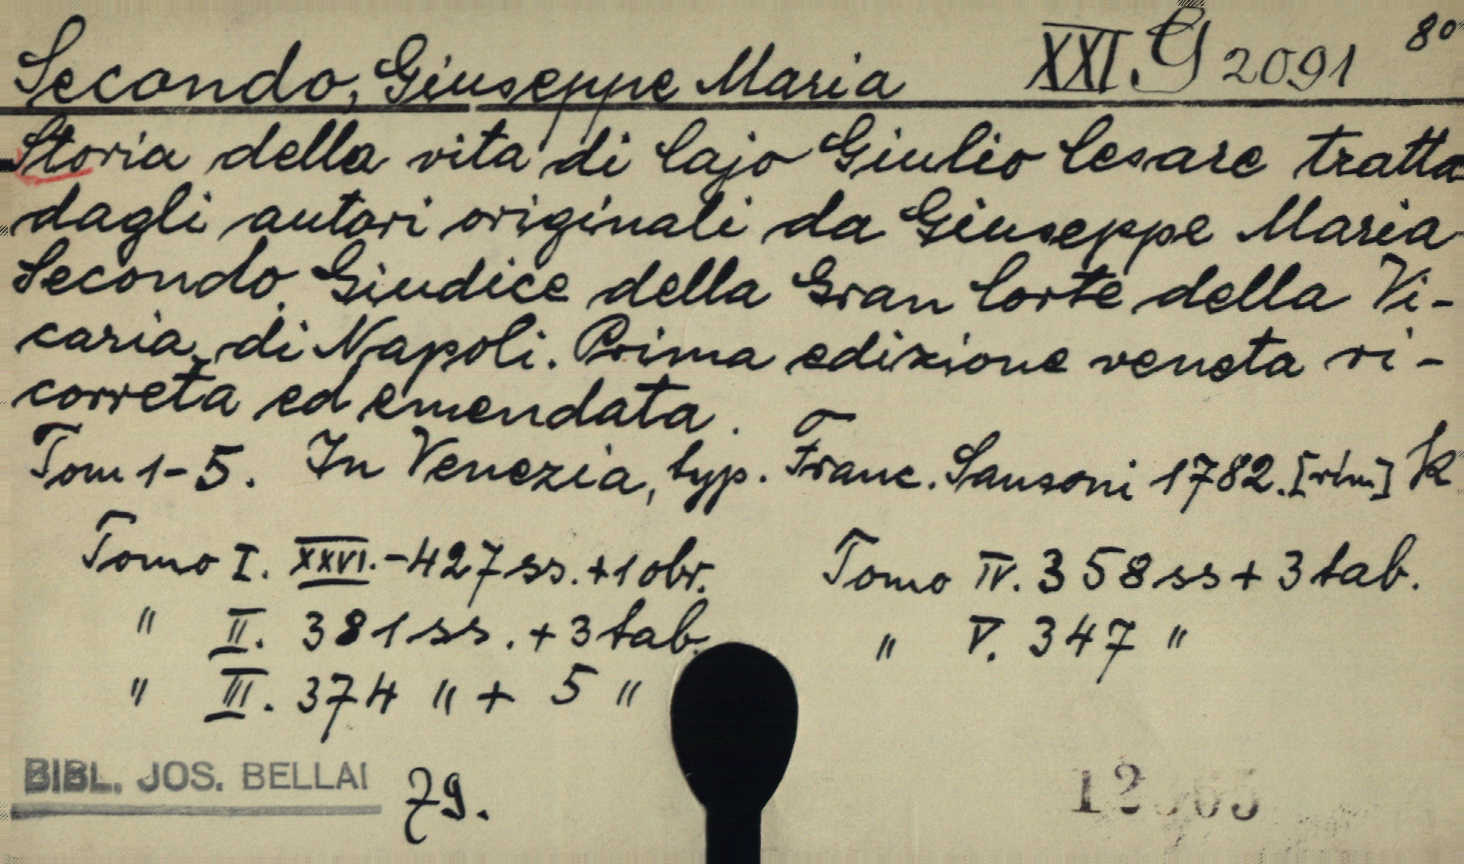 Secondo, Giuseppe Maria XXI. G 2091 8°
Storia della vita di Cajo Giulio Cesare tratta
dagli autori originali da Giuseppe Maria
Secondo Giudice della Gran Corte della Vi-
caria di Napoli. Prima edizione veneta ri-
correta ed emendata.
Tom 1-5. In Venezia, typ. Franc. Sansoni 1782. [rim] K
Tomo I. XXVI.-427 ss. + 1 obr. Tomo IV. 358 ss + 3 tab.
" II. 381 ss. + 3 tab. " V. 347 "
" III. 374 " + 5 "
BIBL. JOS. BELLAI 79.